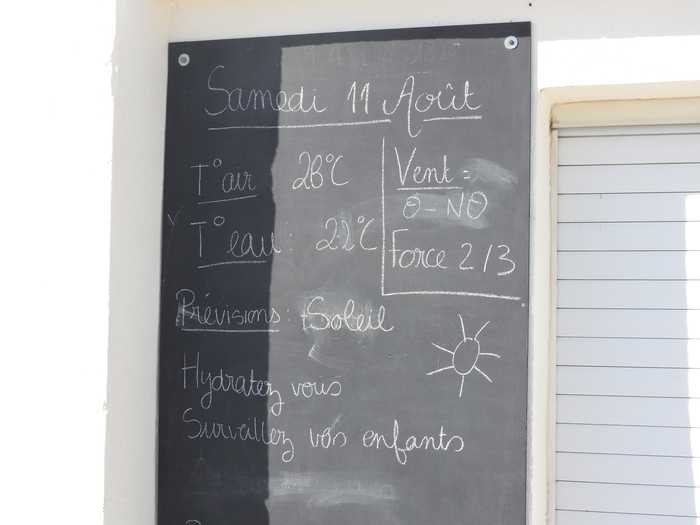 Samedi 11 Août
T° air 26°C
T° eau : 22°C
Vent =
O-NO
Force 2/3
Prévisions : Soleil
Hydratez vous
Surveillez vos enfants